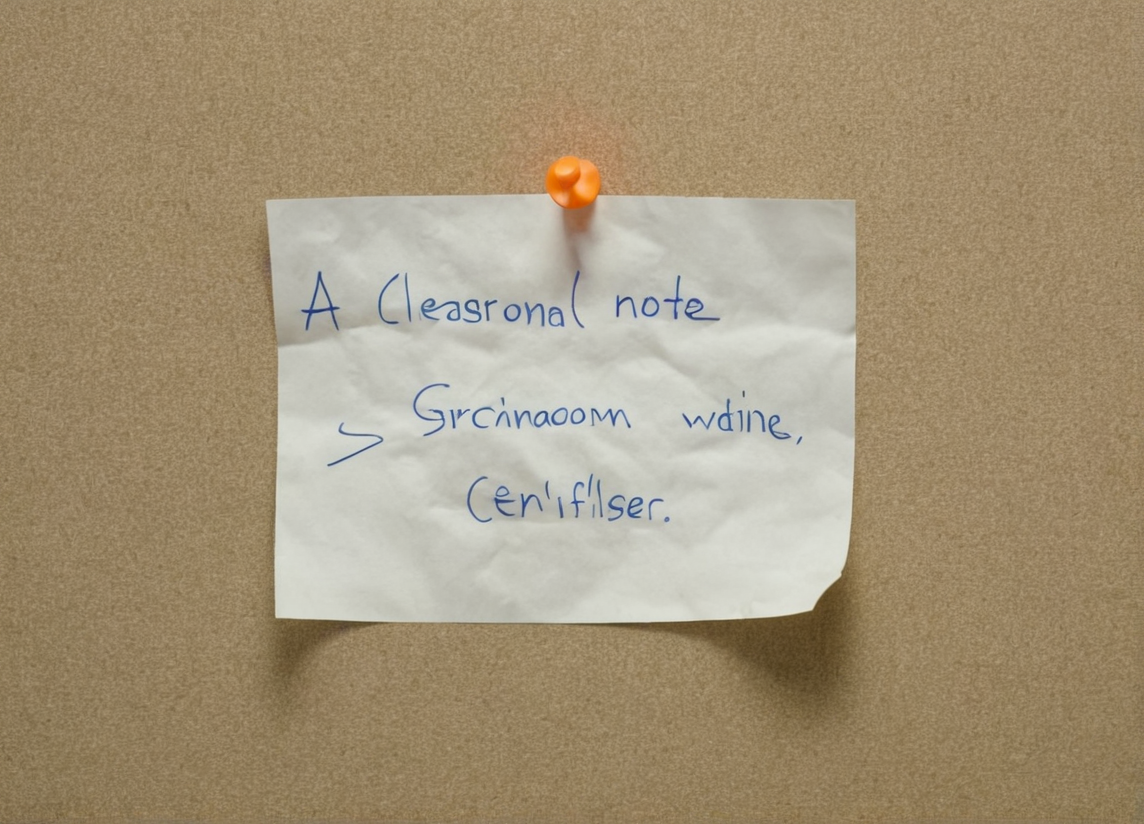 A Cleasronal note
> Srcinaoom wdine,
Cen'if'lser.